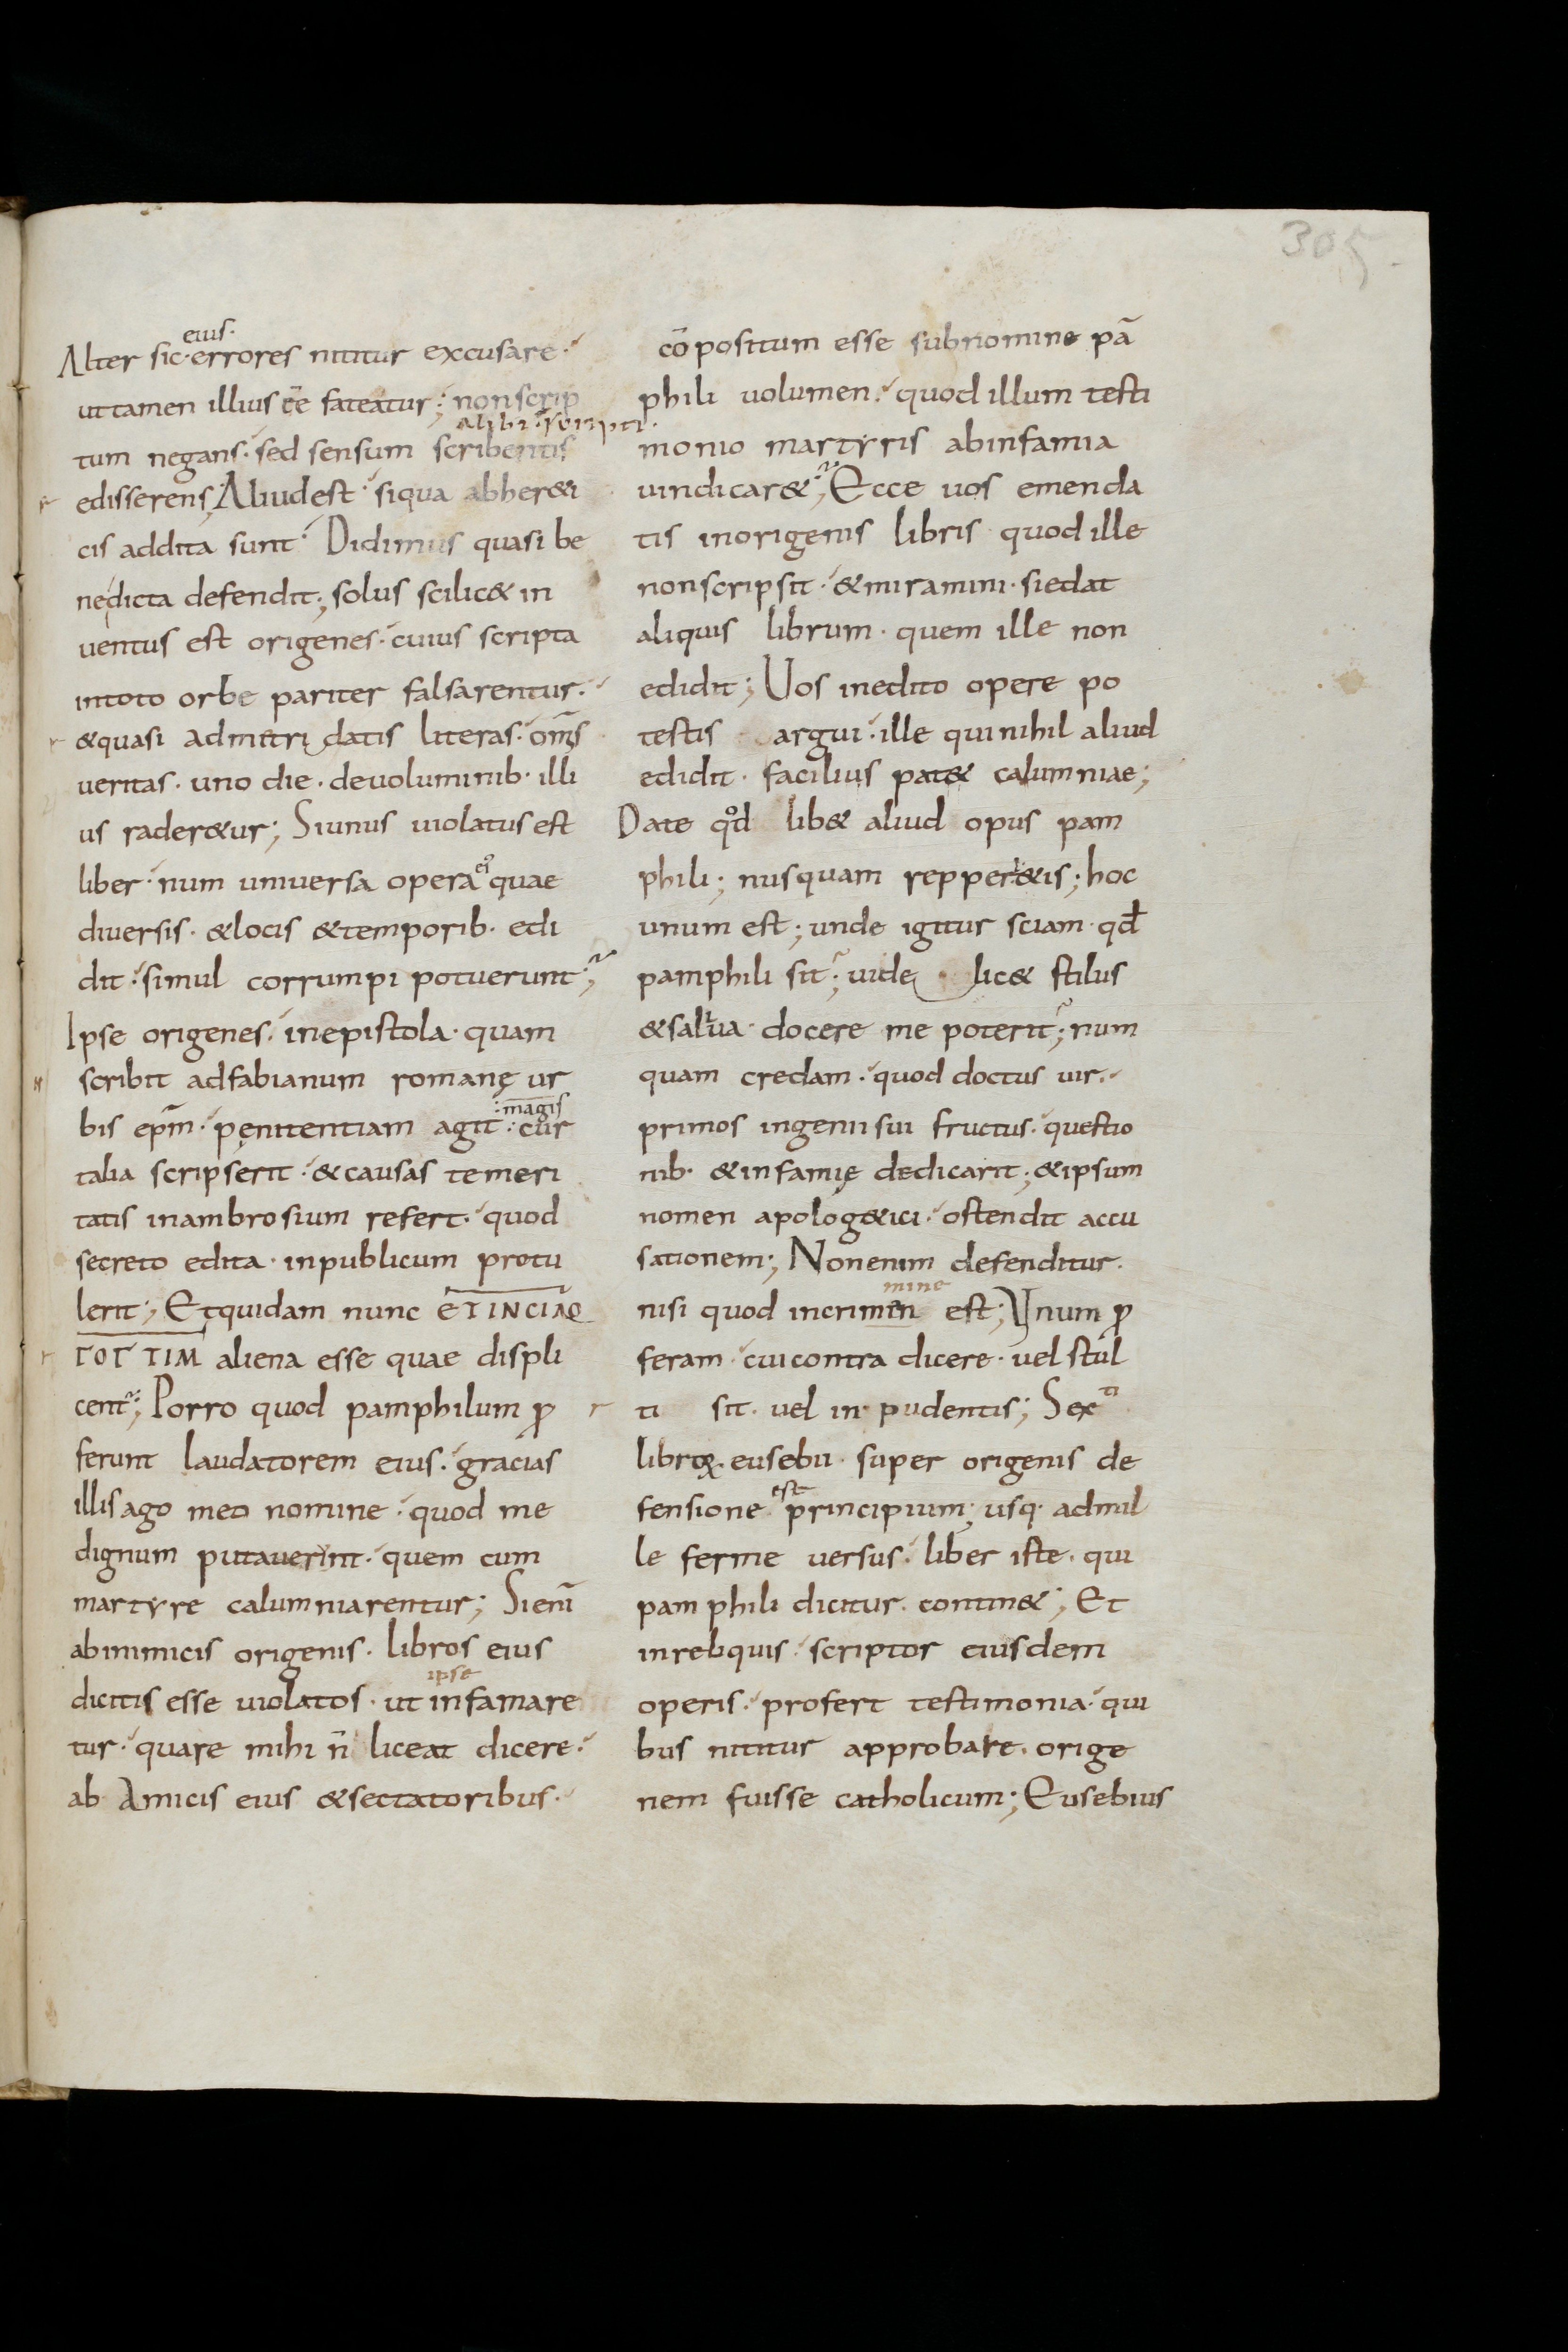 305
eius.
Alter sic errores nititur excusare.
ut tamen illius ēe fateatur; non scrip
alibi scripti.
tum negans. sed sensum scribentis
edisserens; Aliud est siqua ab her&i
cis addita sunt. Didimus quasi be
nedicta defendit; solus scilic& in
uentus est origenes. cuius scripta
in toto orbe pariter falsarentur.
& quasi ad metri datis literas. om̄s
ueritas. uno die. de uoluminib. illi
us rader&ur; Si unus uiolatus est
liber. num uniuersa opera ei' quae
diuersis. & locis & temporib. edi
dit. simul corrumpi potuerunt;
Ipse origenes. in epistola. quam
scribit ad fabianum romanę ur
magis
bis ep̄m. penitentiam agit. cur
talia scripserit. & causas temeri
tatis in ambrosium refert. quod
secreto edita. in publicum protu
lerit; Et quidam nunc ETINCIAQ
TOT TIM aliena esse quae displi
cent; Porro quod pamphilum ꝓ
ferunt laudatorem eius. gracias
illis ago meo nomine. quod me
dignum putauerint. quem cum
martyre calumniarentur; Si eni̅
ab inimicis origenis. libros eius
ipse
dicitis esse uiolatos. ut infamare
tur. quare mihi n̄ liceat dicere.
ab amicis eius & sectatoribus.
cōpositum esse sub nomine pā
phili uolumen. quod illum testi
monio martyris ab infamia
uindicar&; Ecce uos emenda
tis in origenis libris quod ille
non scripsit. & miramini. si edat
aliquis librum. quem ille non
edidit; Uos in edito opere po
testis argui. ille qui nihil aliud
edidit. facilius pat& calumniae;
Date qd̊ lib& aliud opus pam
phili; nusquam repper&is; hoc
unum est; unde igitur sciam. qđ
pamphili sit; uide lic& stilus
& saliua docere me poterit; num
quam credam. quod doctus uir.
primos ingenii sui fructus. questio
nib. & infamię dedicarit; & ipsum
nomen apolog&ici. ostendit accu
sationem; Non enim defenditur.
mine
nisi quod in crimen est; Vnum ꝓ
feram. cui contra dicere. uel stul
ti sit. uel inpudentis; Sex ti
libroꝝ. eusebii. super origenis de
est
fensione principium; usq. ad mil
le ferme uersus. liber iste. qui
pamphili dicitur. contin&; Et
in reliquis. scriptor eiusdem
operis. profert testimonia. qui
bus nititur approbare. orige
nem fuisse catholicum; Eusebius